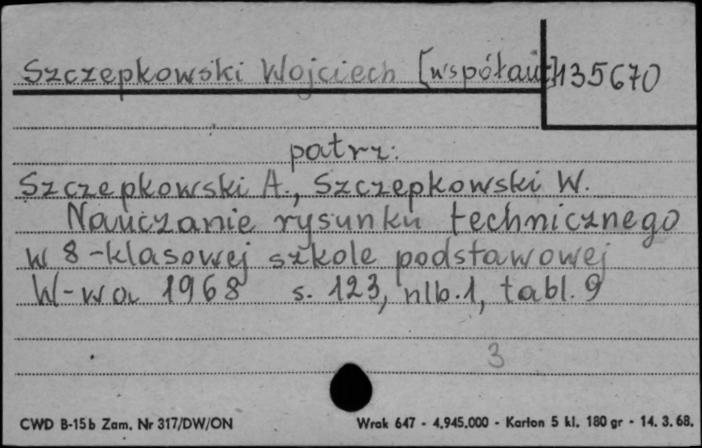 Szczepkowski Wojciech [współaut.] 135670
patrz:
Szczepkowski A., Szczepkowski W.
Nauczanie rysunku technicznego
w 8-klasowej szkole podstawowej
W-wa 1968 s. 123, nlb. 1, tabl. 9
3
CWD B-15b Zam. Nr 317/DW/ON Wrak 647 - 4.945.000 - Karton 5 kl. 180 gr - 14. 3. 68.